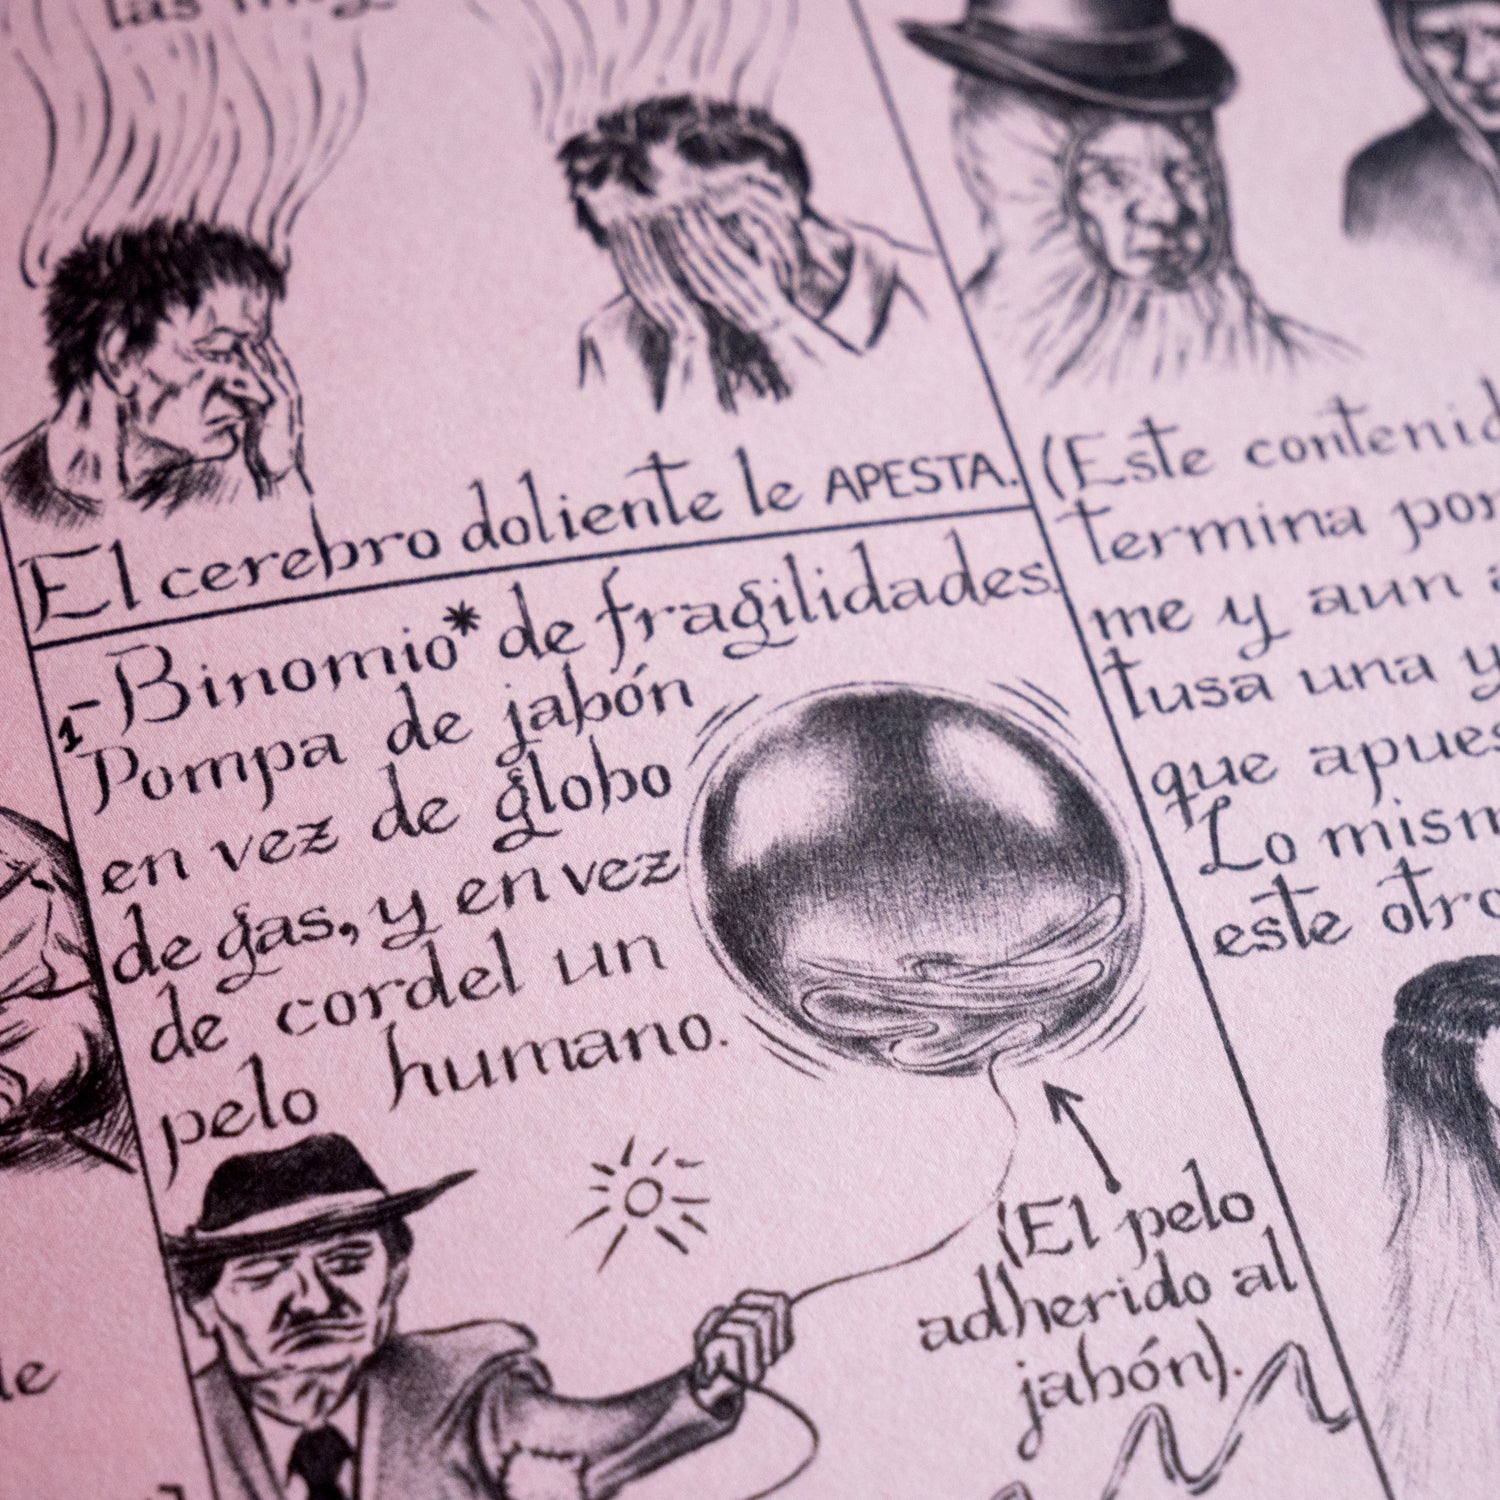 las
El cerebro doliente le APESTA.
1-Binomio* de fragilidades.
Pompa de jabón
en vez de globo
de gas, y en vez
de cordel un
pelo humano.
(El pelo
adherido al
jabón).
(Este
termina por
me y aun
tusa una y
que
Lo
este otro
de